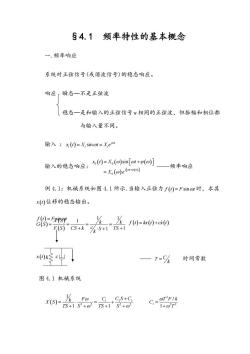 §4.1 频率特性的基本概念
一.频率响应
系统对正弦信号(或谐波信号)的稳态响应。
响应: 瞬态—不是正弦波
稳态—是和输入的正弦信号w相同的正弦波，但振幅和相位都
与输入量不同。
输入：x_i(t) = X_i sin ωt = X_i e^{jωt}
输入的稳态响应： x_o(t) = X_o(ω) sin[ωt + φ(ω)]
= X_o(ω) e^{j[ωt+φ(ω)]} ——频率响应
例 4.1：机械系统如图 4.1 所示.当输入正弦力 f(t) = F sin ωt 时，求其
x(t) 位移的稳态输出。
f(t) = F sin ωt
G(S) = X(S)/F(S) = 1/(CS + k) = (1/k)/((C/k)·S + 1) = (1/k)/(TS + 1) f(t) = kx(t) + cẋ(t)
x(t)
—— T = C/k 时间常数
图 4.1 机械系统